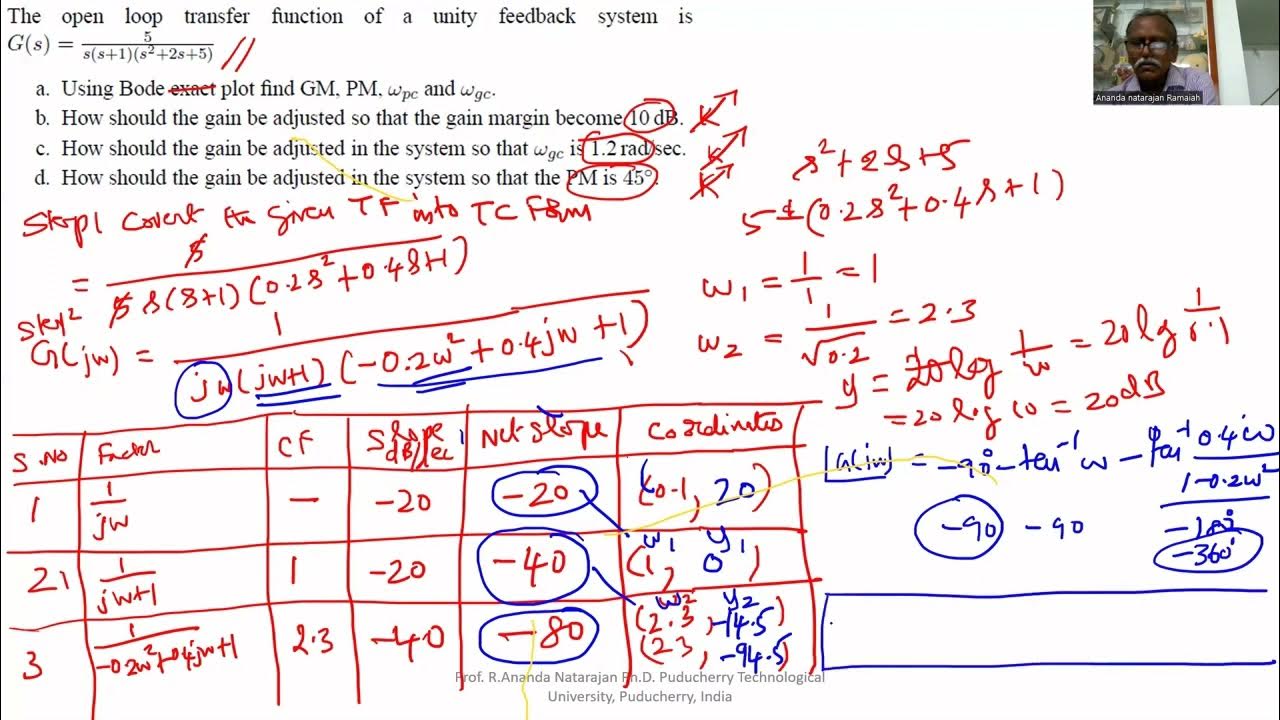 The open loop transfer function of a unity feedback system is
G(s) = 5 / s(s+1)(s²+2s+5) //
a. Using Bode exact plot find GM, PM, ωpc and ωgc.
b. How should the gain be adjusted so that the gain margin become 10 dB. K
c. How should the gain be adjusted in the system so that ωgc is 1.2 rad/sec. K
d. How should the gain be adjusted in the system so that the PM is 45°. K
Ananda natarajan Ramaiah
Step1 Covert the Given TF into TC Form
= 5 / 5 s(s+1)(0.2s²+0.4s+1)
Step2
G(jω) = 1 / jω(jω+1)(-0.2ω²+0.4jω+1)
s²+2s+5
5 (0.2s²+0.4s+1)
ω1 = 1/1 = 1
ω2 = 1/√0.2 = 2.3
y = 20 log 1/ω = 20 log 1/0.1
= 20 log 10 = 20 dB
S.No Factor CF Slope dB/dec Net Slope Coordinates
1 1/jω — -20 -20 (0.1, 20)
2, 1/jω+1 1 -20 -40 ω1 y1 (1, 0)
3 1/-0.2ω²+0.4jω+1 2.3 -40 -80 ω2 y2 (2.3, -14.5)
(23, -94.5)
∠G(jω) = -90° - tan⁻¹ ω - tan⁻¹ 0.4ω / 1-0.2ω²
-90 - 90 -180°
-360°
Prof. R.Ananda Natarajan Ph.D. Puducherry Technological
University, Puducherry, India